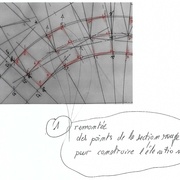 1 remontée
des points de la section rouge
pour construire l'élévation